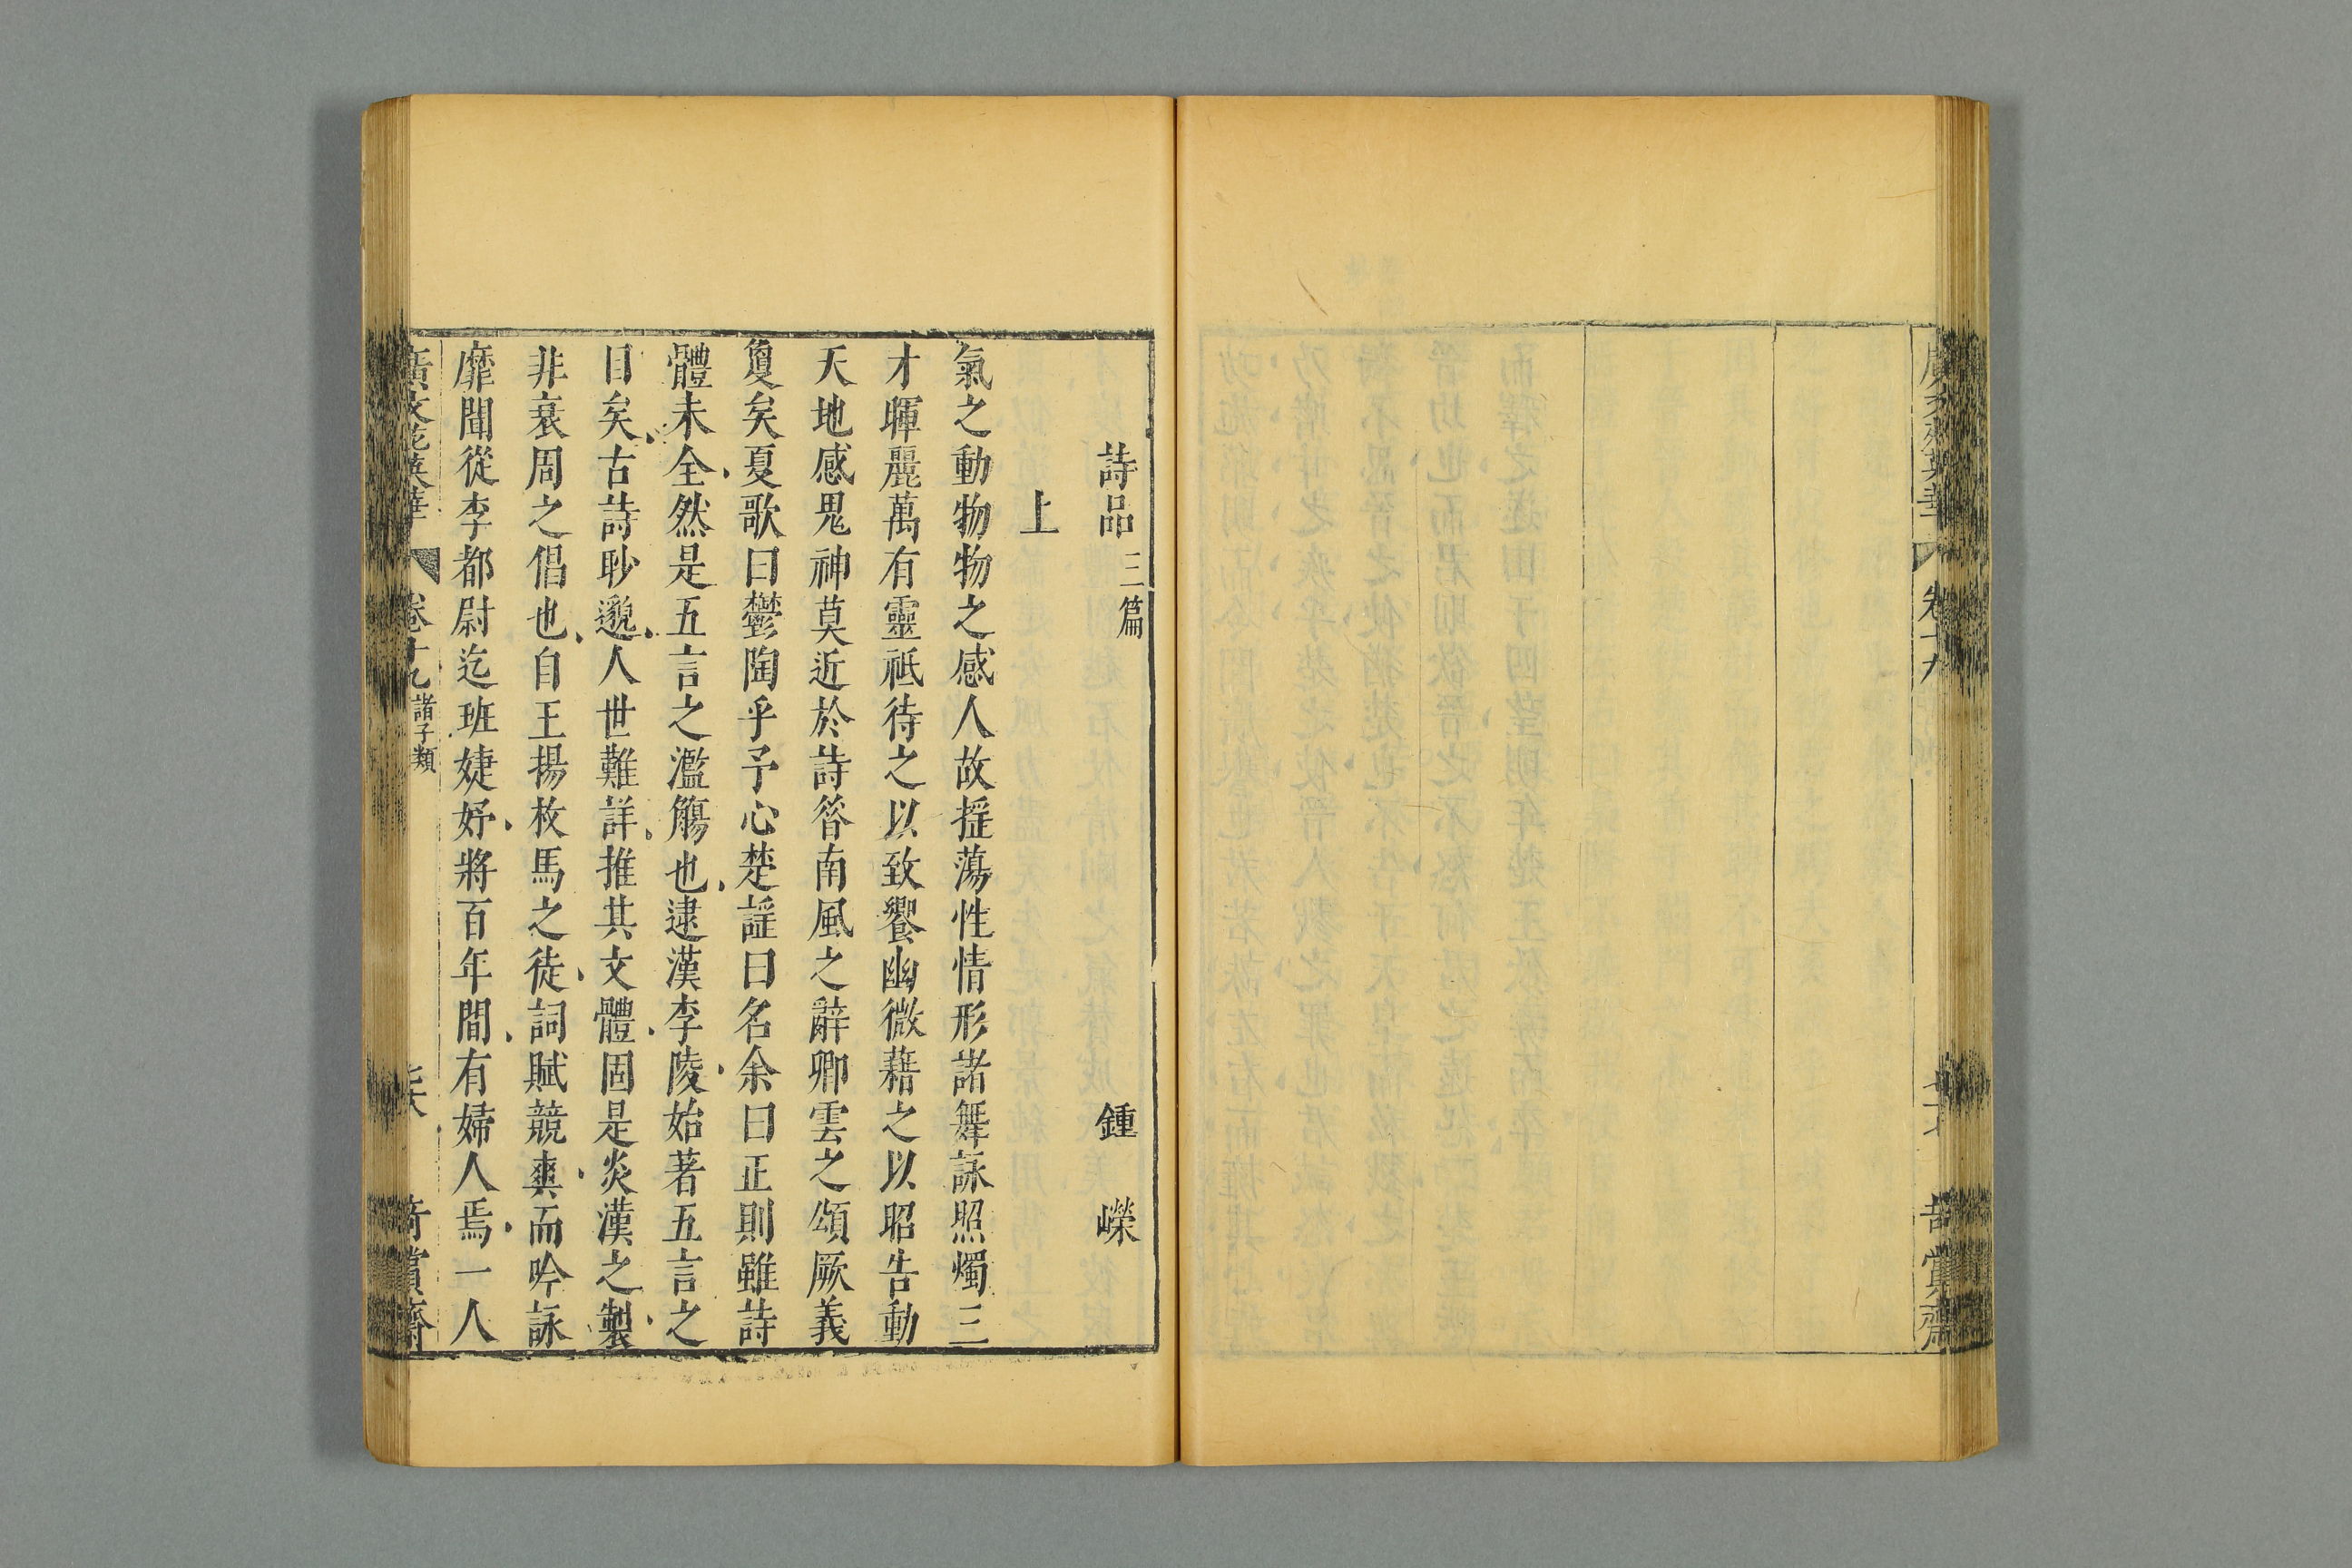 廣文苑英華
卷十九
奇賞齋
詩品三篇 鍾嶸
上
氣之動物物之感人故揺蕩性情形諸舞詠照燭三
才暉麗萬有靈祗待之以致饗幽微藉之以昭告動
天地感鬼神莫近於詩昝南風之辭卿雲之頌厥義
敻矣夏歌曰鬱陶乎予心楚謡曰名余曰正則雖詩
體未全然是五言之濫觴也逮漢李陵始著五言之
目矣古詩眇邈人世難詳推其文體固是炎漢之製
非衰周之倡也自王揚枚馬之徒詞賦競爽而吟詠
靡聞從李都尉迄班婕妤將百年間有婦人焉一人
廣文苑英華 卷十九 諸子類 奇賞齋